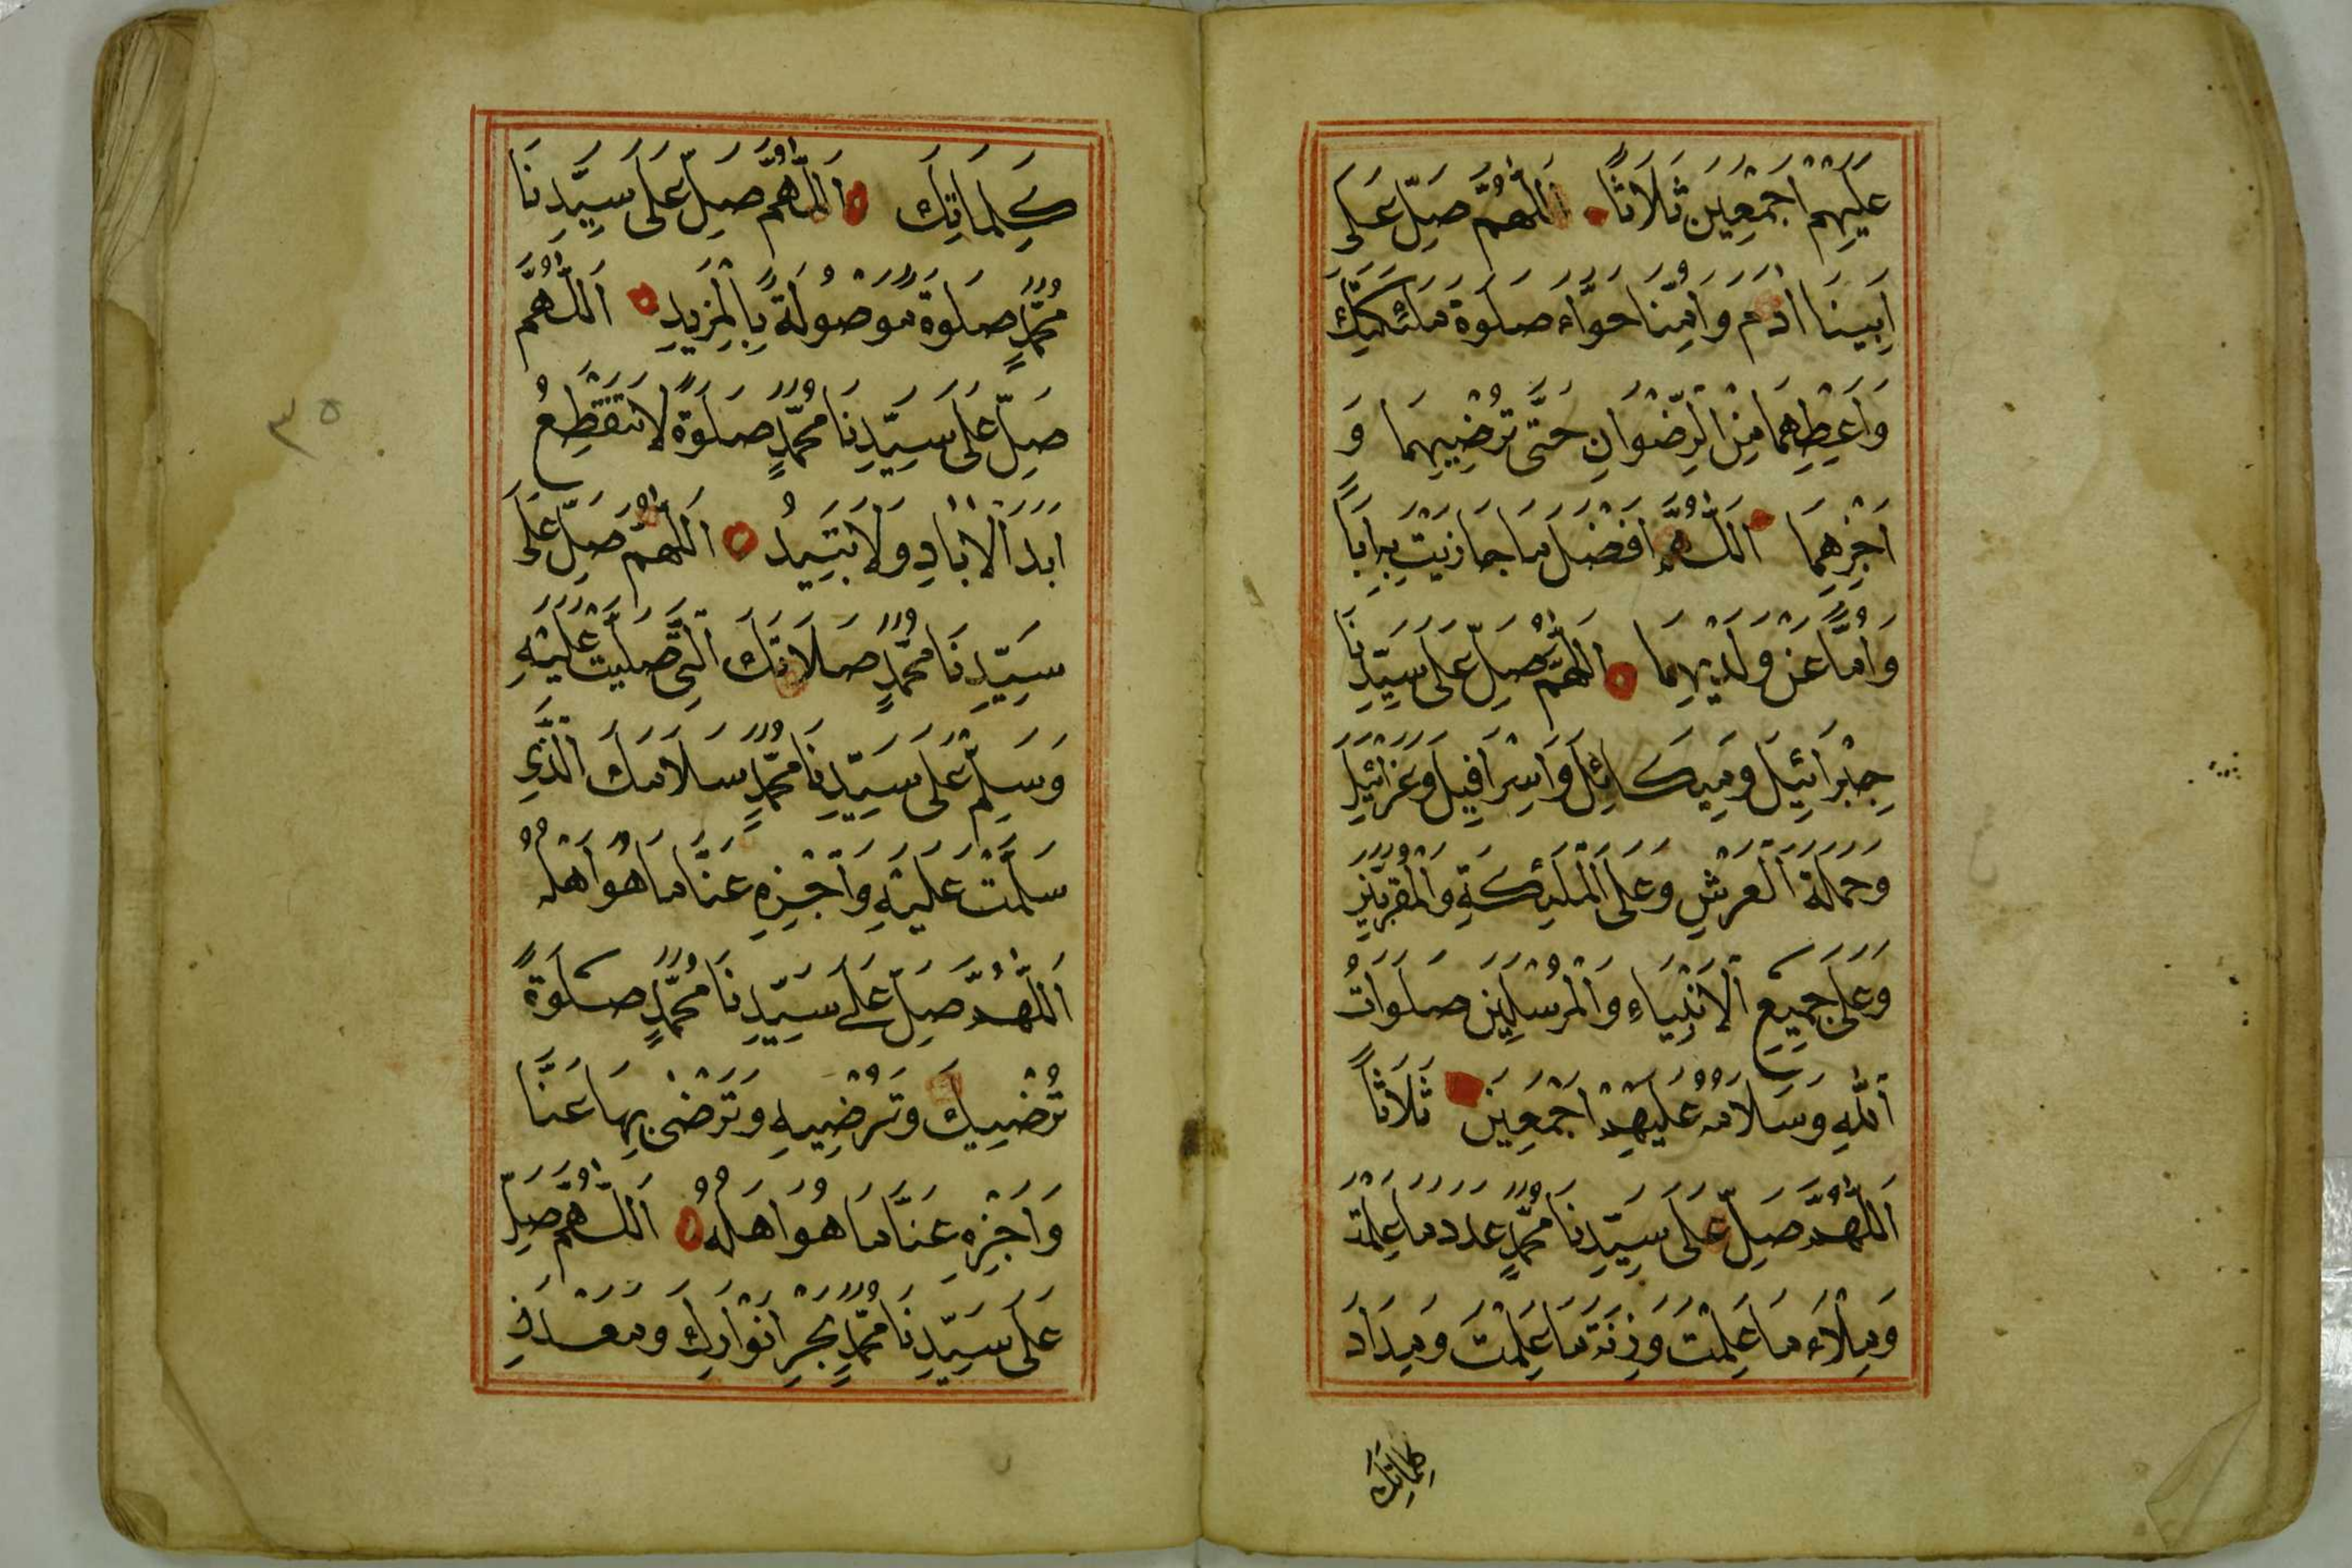 عَلَيْهِمْ اَجْمَعِينَ ثَلَاثًا اَللّٰهُمَّ صَلِّ عَلَى
اَبِينَا اٰدَمَ وَاُمِّنَا حَوَّاءَ صَلٰوةَ مَلٰئِكَتِكَ
وَاَعْطِهِمَا مِنَ الرِّضْوَانِ حَتَّى تُرْضِيَهُمَا وَ
اَجْزِهِمَا اَللّٰهُمَّ اَفْضَلَ مَا جَازَيْتَ بِهِ اَبًا
وَاُمًّا عَنْ وَلَدَيْهِمَا اَللّٰهُمَّ صَلِّ عَلَى سَيِّدِنَا
جِبْرَائِيلَ وَمِيكَائِلَ وَاِسْرَافِيلَ وَعَزْرَائِيلَ
وَحَمَلَةِ الْعَرْشِ وَعَلَى الْمَلٰئِكَةِ وَالْمُقَرَّبِينَ
وَعَلَى جَمِيعِ الْاَنْبِيَاءِ وَالْمُرْسَلِينَ صَلَوَاتُ
اللّٰهِ وَسَلَامُهُ عَلَيْهِمْ اَجْمَعِينَ ثَلَاثًا
اَللّٰهُمَّ صَلِّ عَلَى سَيِّدِنَا مُحَمَّدٍ عَدَدَ مَا عَلِمْتَ
وَمِلْاَءَ مَا عَلِمْتَ وَزِنَةَ مَا عَلِمْتَ وَمِدَادَ
كلماتِكَ
كَلِمَاتِكَ اَللّٰهُمَّ صَلِّ عَلَى سَيِّدِنَا
مُحَمَّدٍ صَلٰوةً مَوْصُولَةً بِالْمَزِيدِ اَللّٰهُمَّ
صَلِّ عَلَى سَيِّدِنَا مُحَمَّدٍ صَلَوةً لَا تَنْقَطِعُ
اَبَدَ الْاٰبَادِ وَلَا تَبِيدُ اَللّٰهُمَّ صَلِّ عَلَى
سَيِّدِنَا مُحَمَّدٍ صَلَاتَكَ الَّتِي صَلَّيْتَ عَلَيْهِ
وَسَلِّمْ عَلَى سَيِّدِنَا مُحَمَّدٍ سَلَامَكَ الَّذِي
سَلَّمْتَ عَلَيْهِ وَاَجْزِهِ عَنَّا مَا هُوَ اَهْلُهُ
اَللّٰهُمَّ صَلِّ عَلَى سَيِّدِنَا مُحَمَّدٍ صَلٰوةً
تُرْضِيكَ وَتُرْضِيهِ وَتَرْضٰى بِهَا عَنَّا
وَاَجْزِهِ عَنَّا مَا هُوَ اَهْلُهُ اَللّٰهُمَّ صَلِّ
عَلَى سَيِّدِنَا مُحَمَّدٍ بَحْرِ اَنْوَارِكَ وَمَعْدَنِ
٣٥